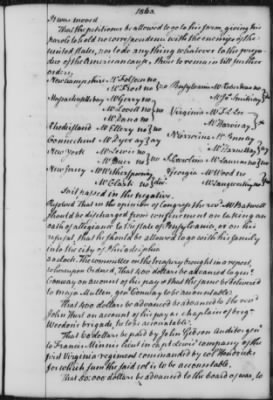 It was moved
That the petitioner be allowed to go to his farm, giving his
parole to hold no correspondence with the enemys of the
united states, nor to do any thing whatever to the preju
dice of the American cause, there to remain till further
order;
New hampshire Mr Folsom no
Mr Frost no
no Pensylvania Mr
Mr Smith ay
Massachusetts bay Mr Gerry no
Mr Lovell no
Mr Dana no
no
Virginia Mr F L Lee
Mr Harvie ay
Rhode island Mr Ellery no
no N Carolina Mr Penn ay
Connecticut Mr Dyer ay
ay Mr Harnett ay
New York Mr Lewis no
Mr Duer no
no S Carolina Mr Laurens no
no
New Jersey Mr Witherspoon
Mr Clark no
Georgia Mr Wood no
Mr Langworthy no
no
So it passed in the negative.
Resolved That in the opinion of Congress the
should be discharged from confinement on taking an
oath of allegiance to the state of Pensylvania, or on his
refusal, that he should be allowed to go with his family
into the city of Philadelphia
The Committee on the treasury brought in a report,
whereupon Ordered, That 400 dollars be advanced to gen.
Conway on account of his pay & that the same be delivered
to major Mullen, gen Conway to be accountable.
That 400 dollars be advanced to the revd
John Hurt on account of his pay as chaplain of brigr
Woodon's brigade, he to be accountable.
That dollars be paid by John Gibson Auditor genl
to Francis Minnis lieut in capt Lewis' company of the
first Virginia regiment commanded by col Hendricks
for which sum the said colo is to be accountable.
That 50,000 dollars be advanced to the board of war, to